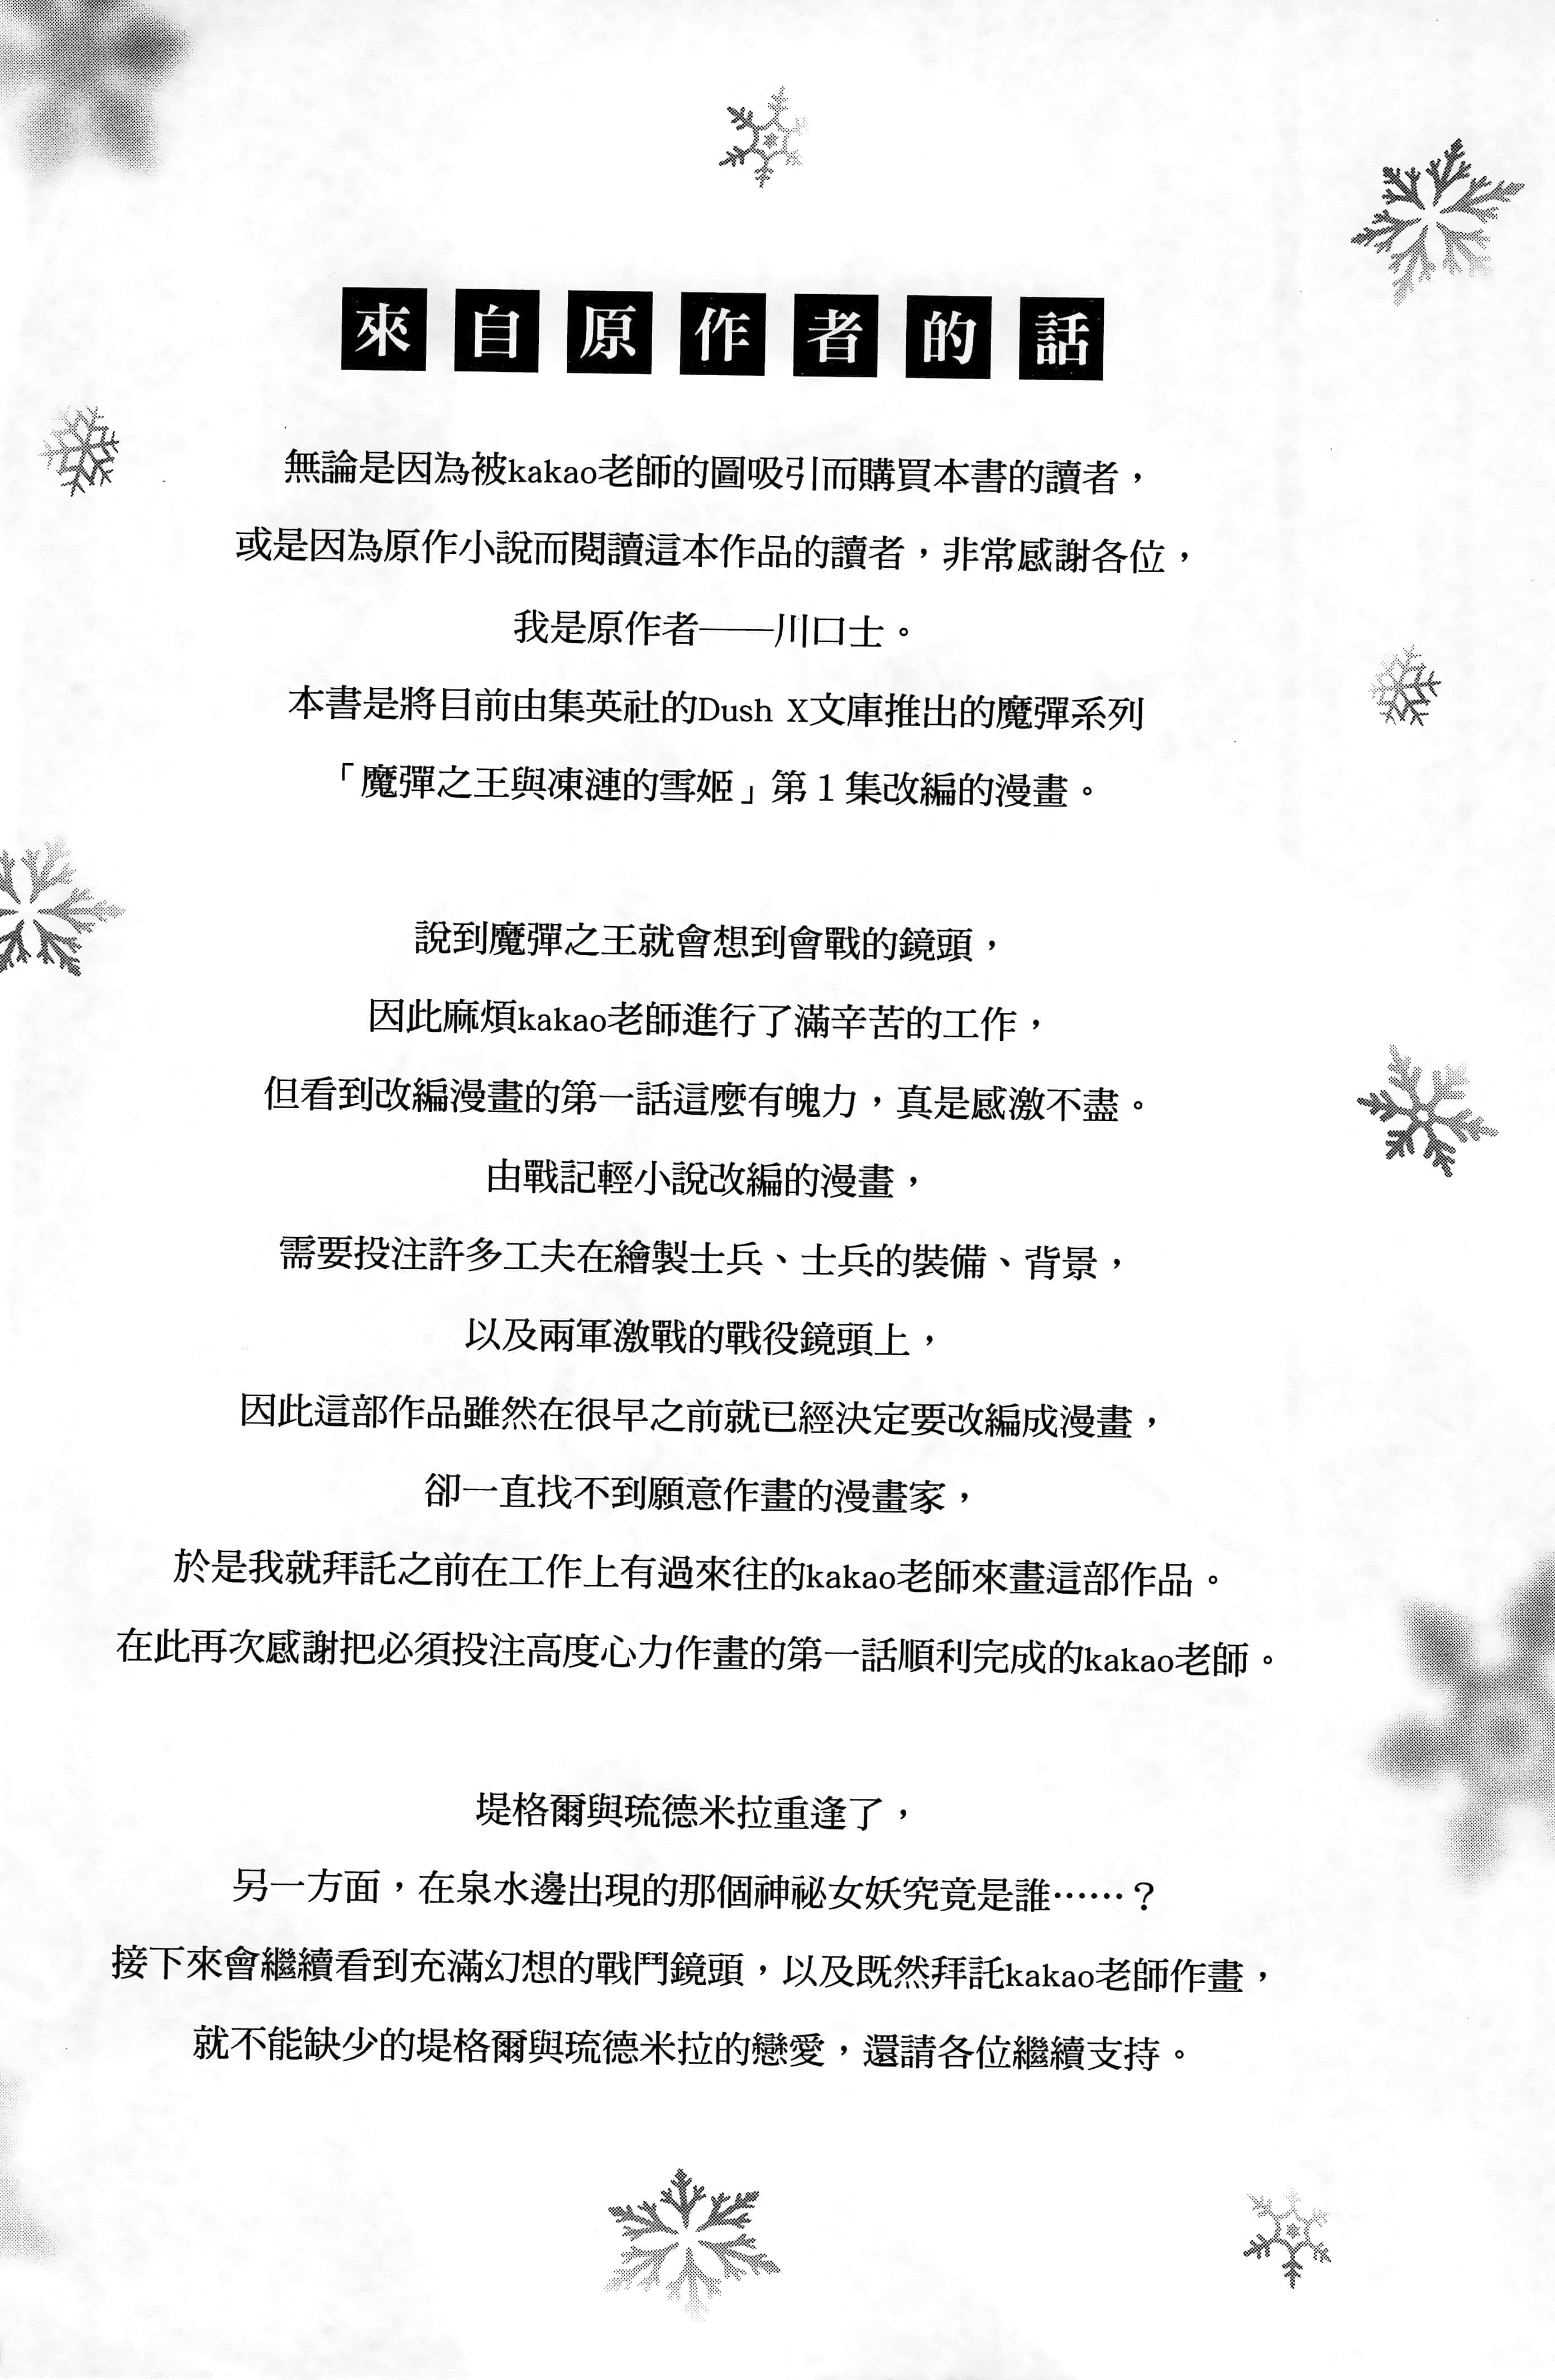 來自原作者的話
無論是因為被kakao老師的圖吸引而購買本書的讀者，
或是因為原作小說而閱讀這本作品的讀者，非常感謝各位，
我是原作者——川口士。
本書是將目前由集英社的Dush X文庫推出的魔彈系列
「魔彈之王與凍漣的雪姬」第１集改編的漫畫。
說到魔彈之王就會想到會戰的鏡頭，
因此麻煩kakao老師進行了滿辛苦的工作，
但看到改編漫畫的第一話這麼有魄力，真是感激不盡。
由戰記輕小說改編的漫畫，
需要投注許多工夫在繪製士兵、士兵的裝備、背景，
以及兩軍激戰的戰役鏡頭上，
因此這部作品雖然在很早之前就已經決定要改編成漫畫，
卻一直找不到願意作畫的漫畫家，
於是我就拜託之前在工作上有過來往的kakao老師來畫這部作品。
在此再次感謝把必須投注高度心力作畫的第一話順利完成的kakao老師。
堤格爾與琉德米拉重逢了，
另一方面，在泉水邊出現的那個神祕女妖究竟是誰……？
接下來會繼續看到充滿幻想的戰鬥鏡頭，以及既然拜託kakao老師作畫，
就不能缺少的堤格爾與琉德米拉的戀愛，還請各位繼續支持。